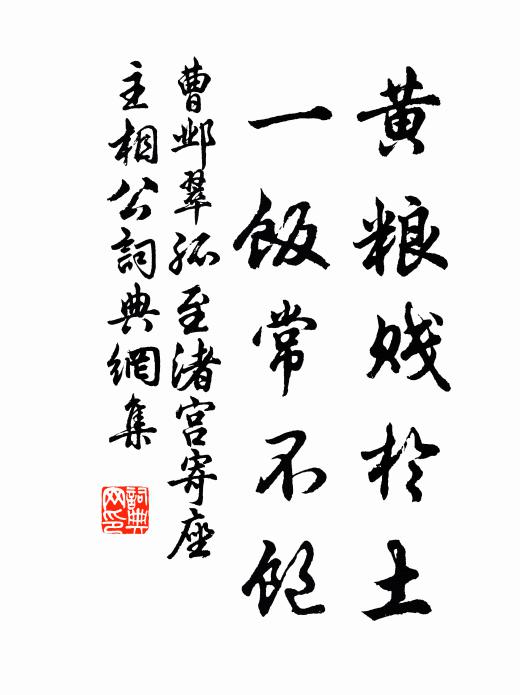 黄粮贱於土
一飯常不飽
曹邺翠孤至渚宫寄座
主相公詞典網集
詞典
网印